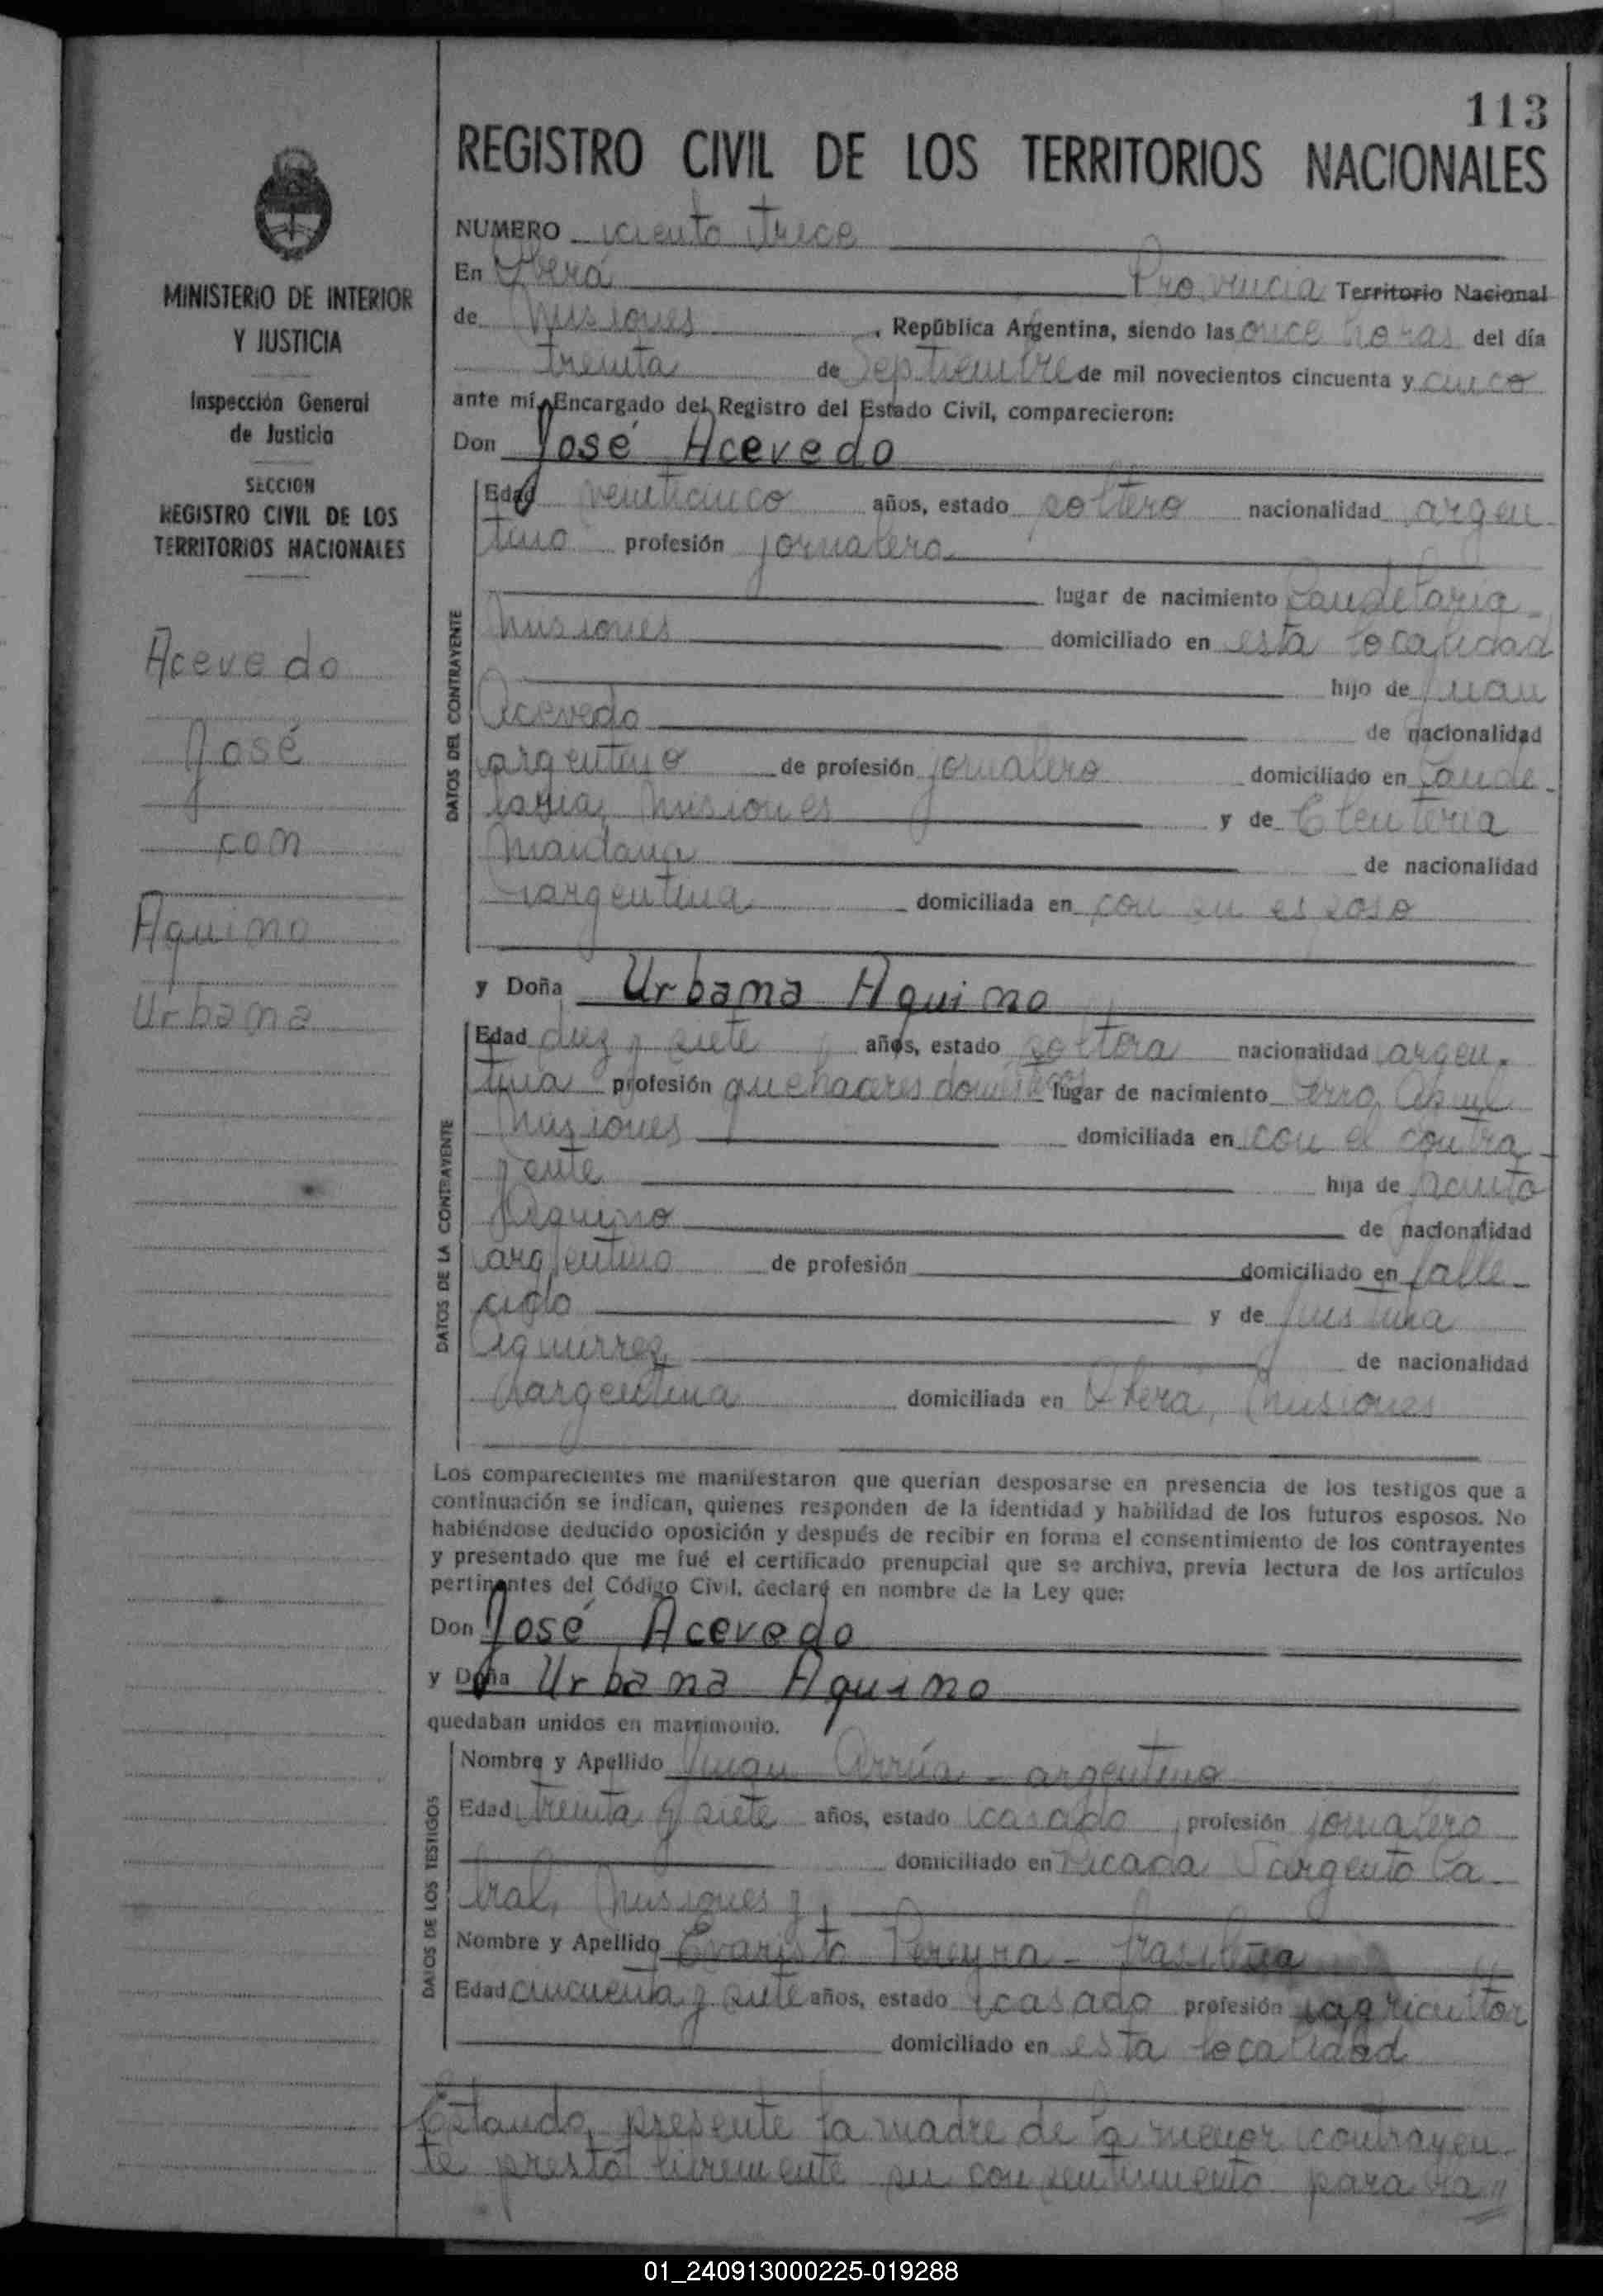 113
REGISTRO CIVIL DE LOS TERRITORIOS NACIONALES
MINISTERIO DE INTERIOR
Y JUSTICIA
Inspección General
de Justicia
SECCION
REGISTRO CIVIL DE LOS
TERRITORIOS NACIONALES
Acevedo
José
con
Aquino
Urbana
NUMERO ciento trece
En Oberá Provincia Territorio Nacional
de Misiones, República Argentina, siendo las once horas del día
treinta de Septiembre de mil novecientos cincuenta y cinco
ante mí, Encargado del Registro del Estado Civil, comparecieron:
Don José Acevedo
DATOS DEL CONTRAYENTE
Edad veinticinco años, estado soltero nacionalidad argen-
tino profesión jornalero
lugar de nacimiento Candelaria-
Misiones domiciliado en esta localidad
hijo de Juan
Acevedo de nacionalidad
argentino de profesión jornalero domiciliado en Cande-
laria, Misiones y de Eleuteria
Maidana de nacionalidad
argentina domiciliada en con su esposo
y Doña Urbana Aquino
DATOS DE LA CONTRAYENTE
Edad diez y siete años, estado soltera nacionalidad argen-
tina profesión quehaceres domésticos lugar de nacimiento Cerro Azul
Misiones domiciliada en con el contra-
yente hija de Jacinto
Aquino de nacionalidad
argentino de profesión domiciliado en falle-
cido y de Justina
Aguirrez de nacionalidad
argentina domiciliada en Oberá, Misiones
Los comparecientes me manifestaron que querían desposarse en presencia de los testigos que a
continuación se indican, quienes responden de la identidad y habilidad de los futuros esposos. No
habiéndose deducido oposición y después de recibir en forma el consentimiento de los contrayentes
y presentado que me fué el certificado prenupcial que se archiva, previa lectura de los artículos
pertinentes del Código Civil, declaré en nombre de la Ley que:
Don José Acevedo
y Doña Urbana Aquino
quedaban unidos en matrimonio.
DATOS DE LOS TESTIGOS
Nombre y Apellido Juan Arrúa - argentino
Edad treinta y siete años, estado casado profesión jornalero
domiciliado en Picada Sargento Ca-
bral, Misiones y
Nombre y Apellido Evaristo Pereyra -
Edad cincuenta y siete años, estado casado profesión agricultor
domiciliado en esta localidad
Estando presente la madre de la menor contrayen-
te prestó libremente su consentimiento para la//
01_240913000225-019288